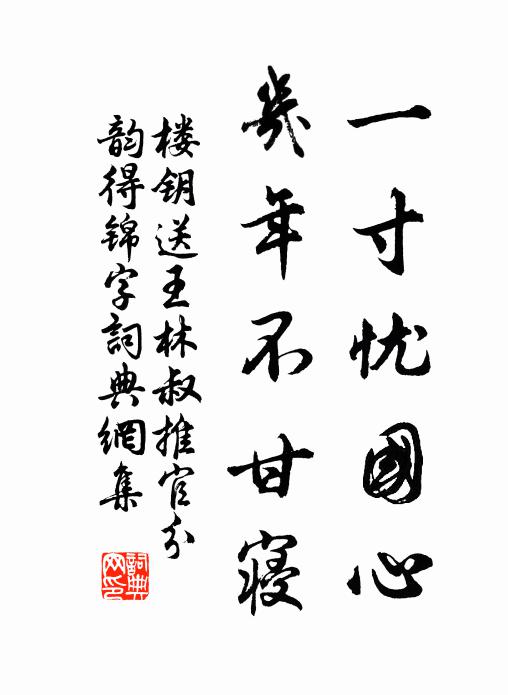 一寸忧國心
幾年不甘寝
楼钥送王林叔推官分
韵得锦字詞典網集
詞典網印